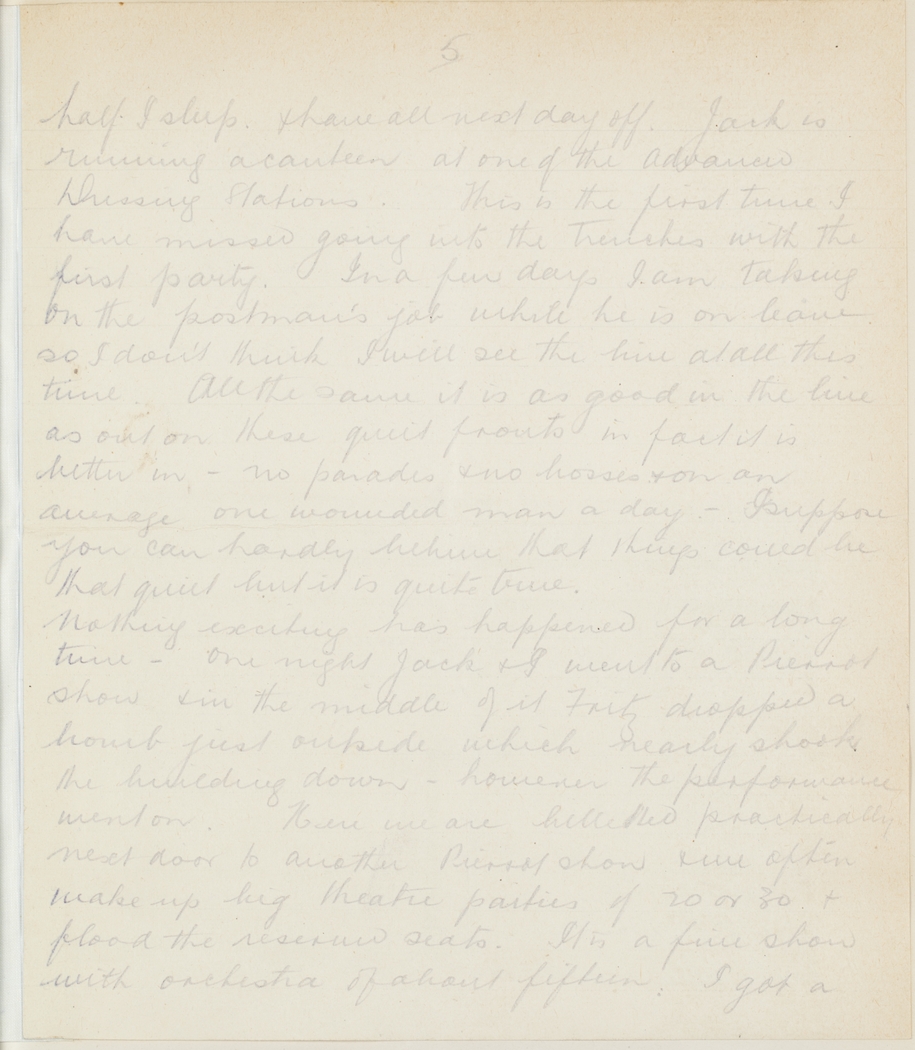 5
half I sleep. & have all next day off. Jack is
running a canteen at one of the Advanced
Dressing Stations. This is the first time I
have missed going into the trenches with the
first party. In a few days I am taking
on the postman's job while he is on leave
so I don't think I will see the line at all this
time. All the same it is as good in the line
as out on these quiet fronts in fact it is
better in - no parades & no bosses & on an
average one wounded man a day. - I suppose
you can hardly believe that things could be
that quiet but it is quite true.
Nothing exciting has happened for a long
time - One night Jack & I went to a Pierrot
show & in the middle of it Fritz dropped a
bomb just outside which nearly shook
the building down - however the performance
went on. Here we are billetted practically
next door to another Pierrot show & we often
make up big theatre parties of 20 or 30 &
flood the reserved seats. It is a fine show
with orchestra of about fifteen. I got a